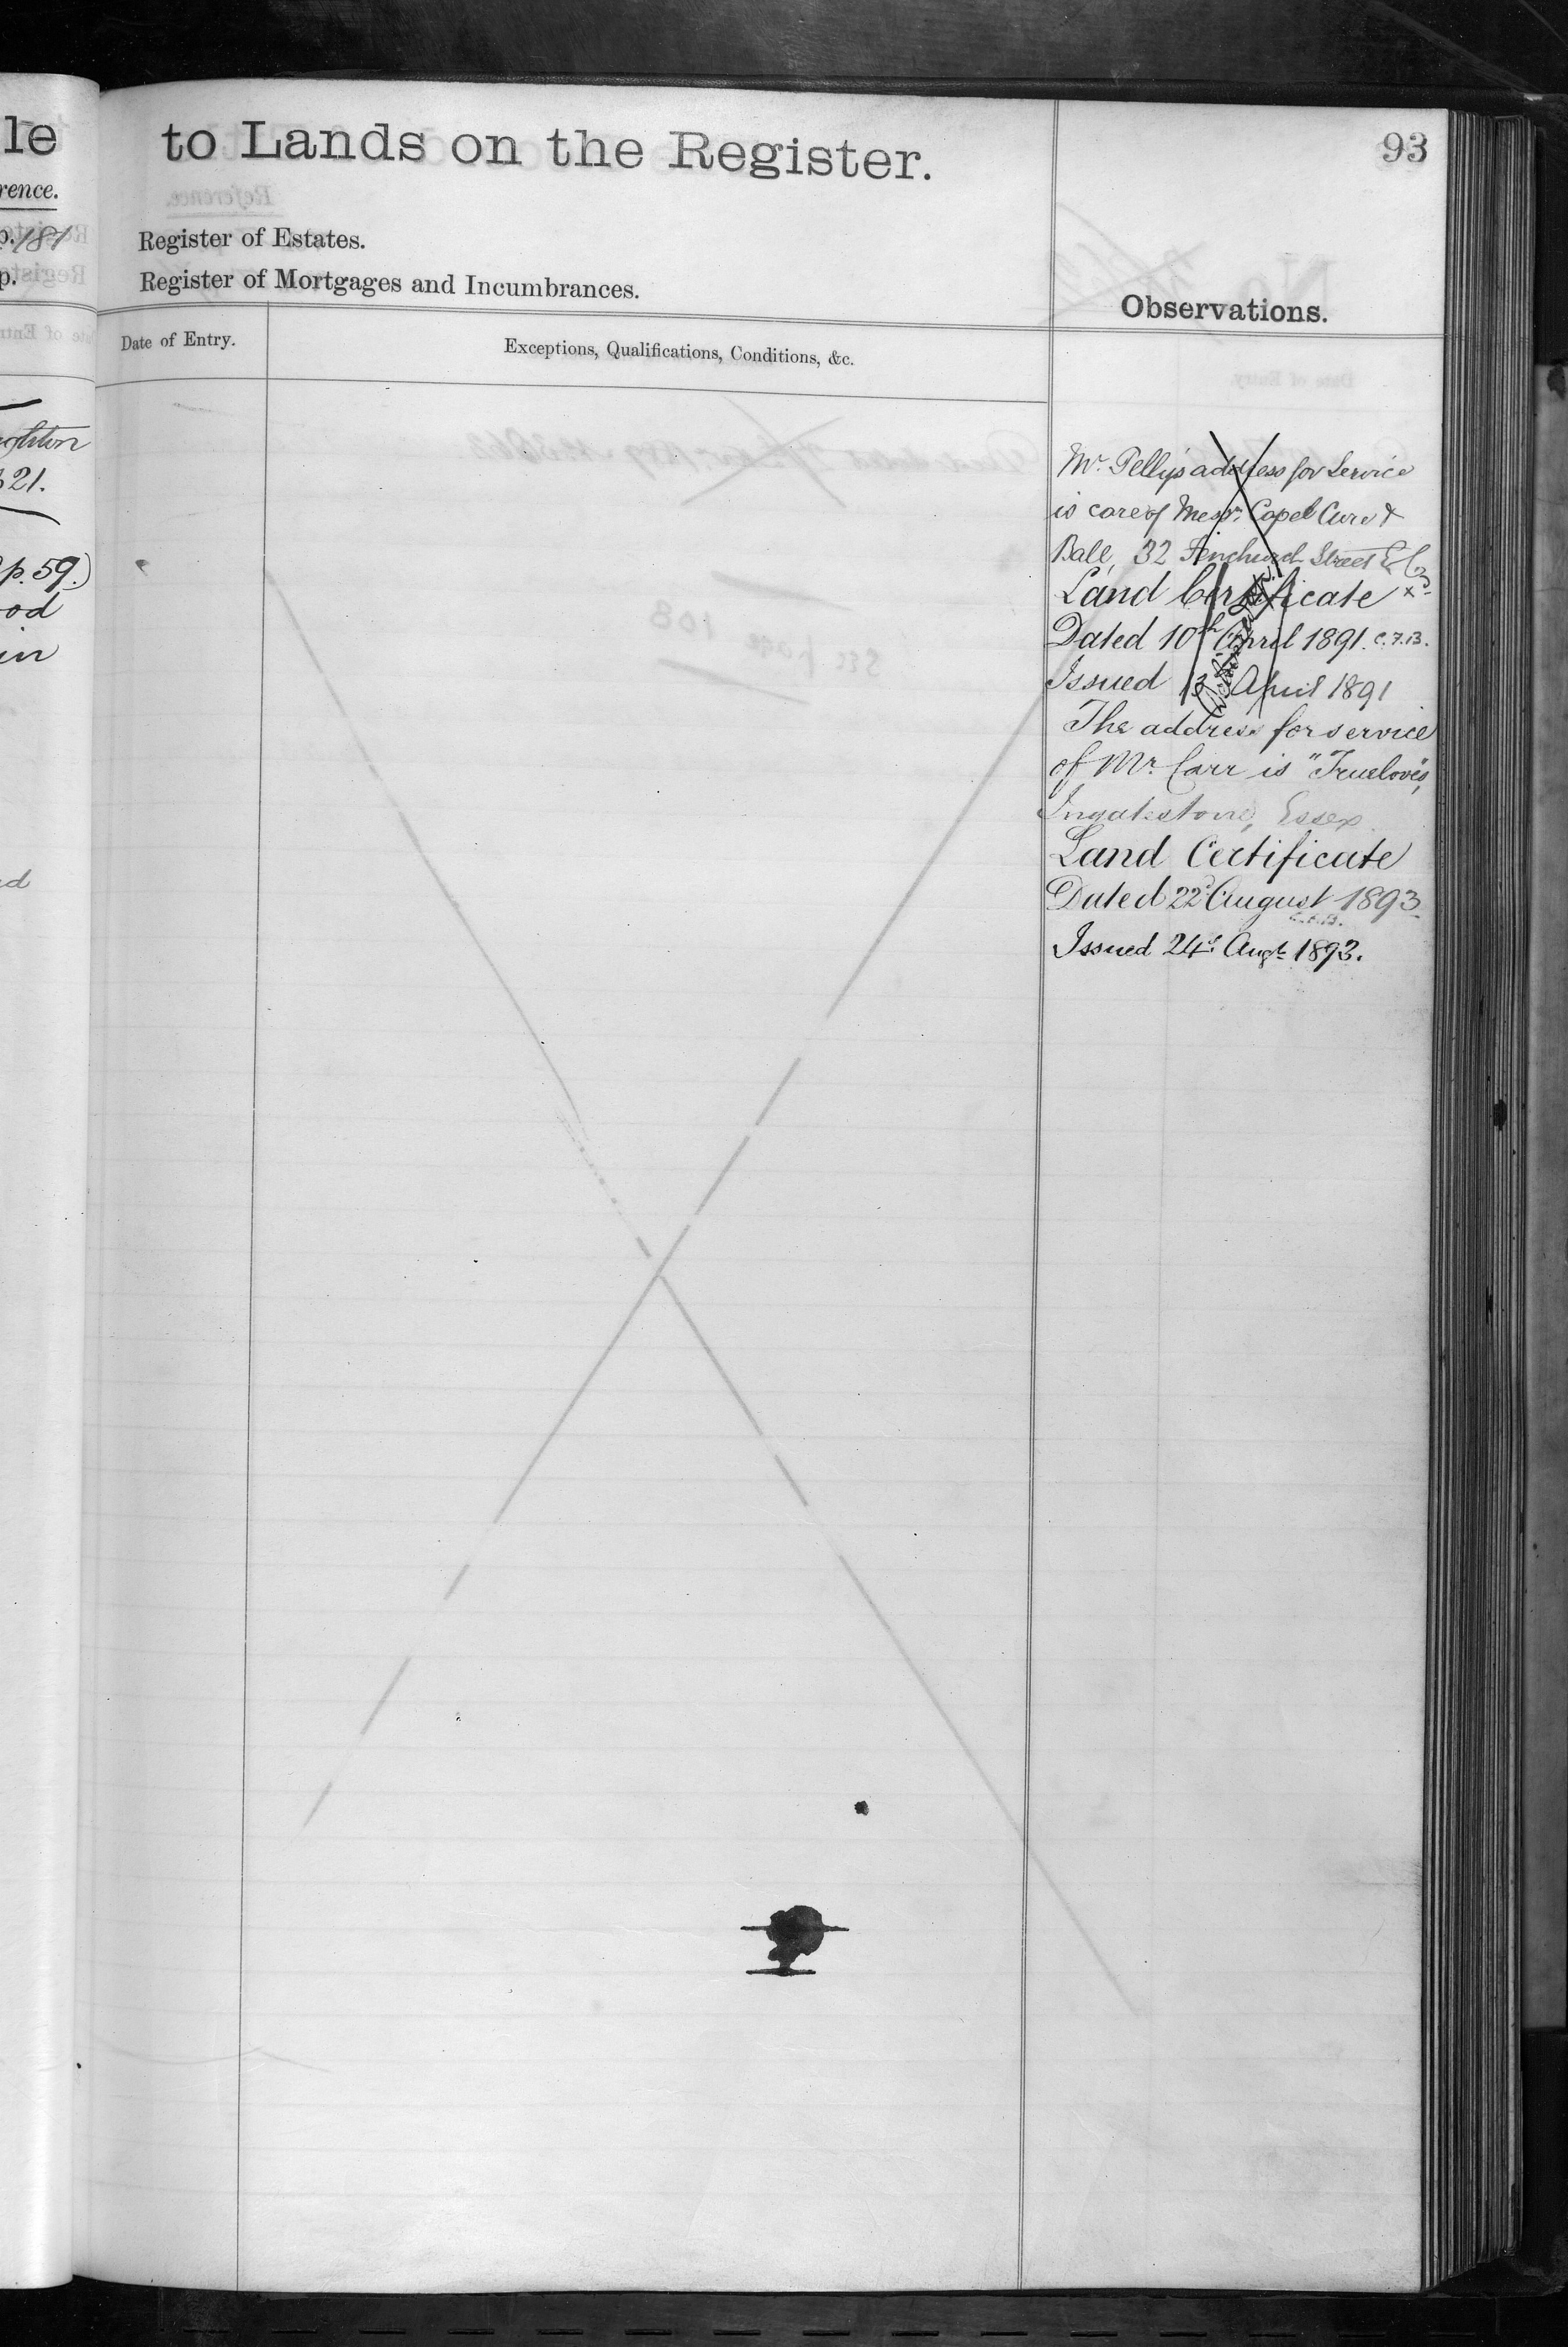 le
rence.
p. 181
p.
321.
p. 59.)
od
in
to Lands on the Register.
93
Register of Estates.
Register of Mortgages and Incumbrances.
Observations.
Date of Entry.
Exceptions, Qualifications, Conditions, &c.
Mr. Pelly's address for Service
is care of Messrs. Capel Cure &
Ball, 32 Fenchurch Street E.C.
Land Certificate
Dated 10th April 1891. C.F.B.
Issued 13 April 1891
The address for service
of Mr. Carr is "Trueloves,"
Ingatestone, Essex
Land Certificate
Dated 22d August 1893
Issued 24th Augt. 1893.